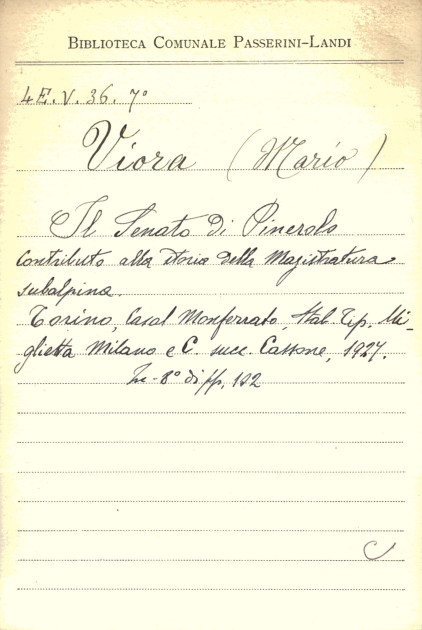 BIBLIOTECA COMUNALE PASSERINI-LANDI
4E.V.36.7°
Viora (Mario)
Il Senato di Pinerolo
Contributo alla storia della Magistratura
subalpina.
Torino, Casal Monferrato, Stab. Tip. Mi-
glietta Milano e C. succ. Cassone, 1927.
In-8° di pp. 132